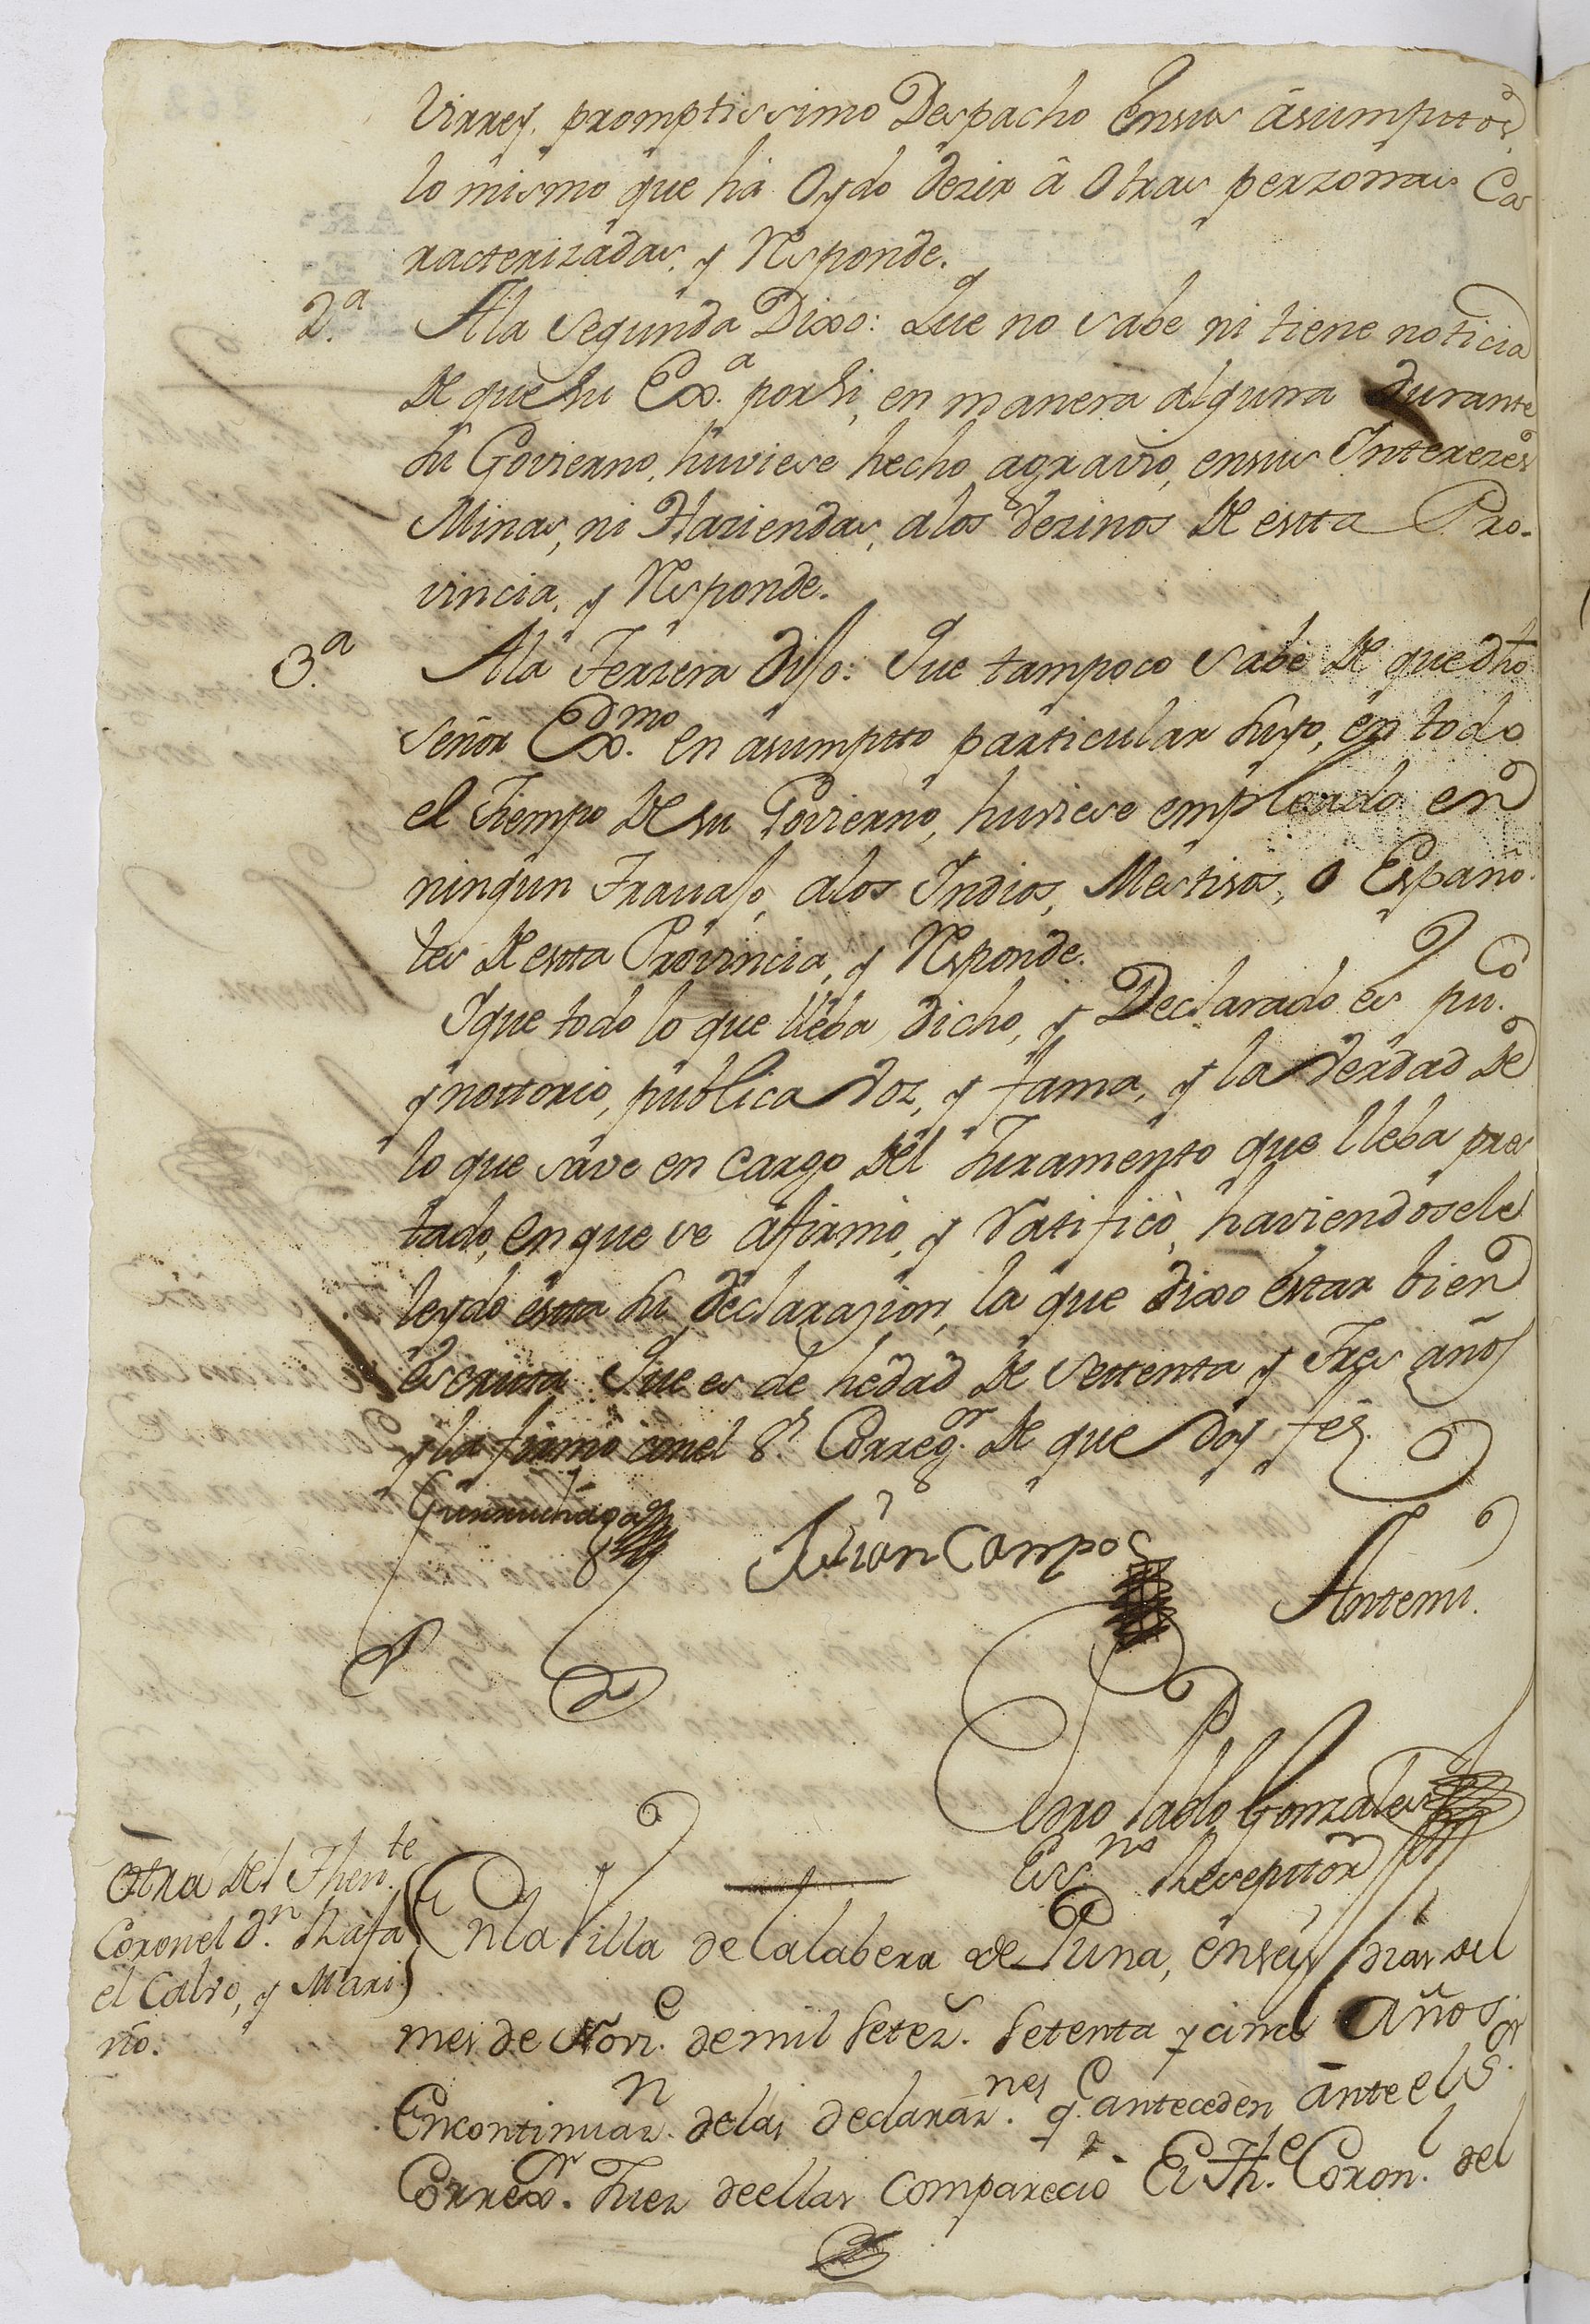 Virrey, promptissimo Despacho ensus asumptos,
lo mismo que há Oydo dezir â Otras perzonas Ca
racterizadas, y Responde.
2.ª Ala Segunda Dixo: Que no sabe ni tiene noticia
De que su Exª. por si, en manera alguna durante
su Govierno, huviese hecho agravio, ensus Interezes
Minas, ni Haziendas, alos vezinos De estta Pro-
vincia, y Responde.
3.ª Ala Terzera dijo: Que tampoco sabe De que dho
Señor Exmo. en asumptto particular suyo, en todo
el Tiempo De su Govierno, huviese empleado en
ningun Travajo, alos Indios, Mestisos, o Españo
les De estta Provincia, y Responde.
Y que todo lo que lleba dicho, y Declarado es pu.co
y nottorio, publica voz, y fama, y la verdad De
lo que save en cargo Del Juramento que lleba pres
tado, en que se afirmò, y ratificò, haviendosele
leydo estta su declarazion, la que dixo estar bien
escritta Que es de hedad De settenta y Tres años
y la firmò con el Sr. Corregor. De que doy fee
Gurruchaga
Julian Campos
Antemi.
Pedro Pablo Gonzales
Essno. Reseptor
Otra Del Thente.
Coronel Dn. Rafa
el Calvo, y Mari
ño.
En la Villa de Talabera de Puna, en seys dias del
mes de Nove. de mil setez. setenta y cinco Años.
En continuazn. de las declaraznes. q.e anteceden ante el Sor.
Correxor. Juez de ellas comparecio El The. Coronl. del